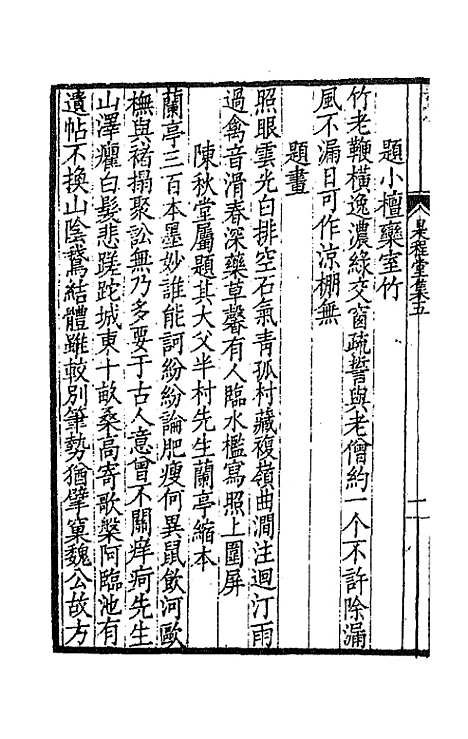 冬花庵
題小檀欒室竹
竹老鞭橫逸濃綠交窗疏誓與老僧約一个不許除漏
風不漏日可作涼棚無
題畫
照眼雲光白排空石氣青孤村藏複嶺曲澗注迴汀雨
過禽音滑春深藥草馨有人臨水檻寫照上圍屏
陳秋堂屬題其大父半村先生蘭亭縮本
蘭亭三百本墨妙誰能訶紛紛論肥瘦何異鼠飲河歐
橅與褚搨聚訟無乃多要于古人意曾不關痒疴先生
山澤癯白髮悲蹉跎城東十畝桑高寄歌槃阿臨池有
遺帖不換山陰鵞結體雖較別筆勢猶擘窠魏公故方